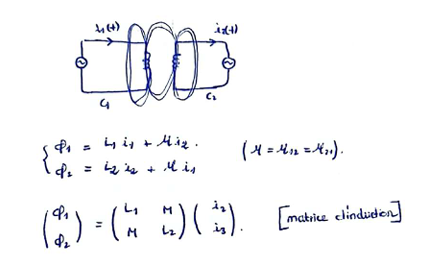 i₁(t) i₂(t)
C₁ C₂
ϕ₁ = L₁ i₁ + M i₂. (M = M₁₂ = M₂₁).
ϕ₂ = L₂ i₂ + M i₁
(ϕ₁ ϕ₂) = (L₁ M M L₂) (i₂ i₃). [matrice d'induction]